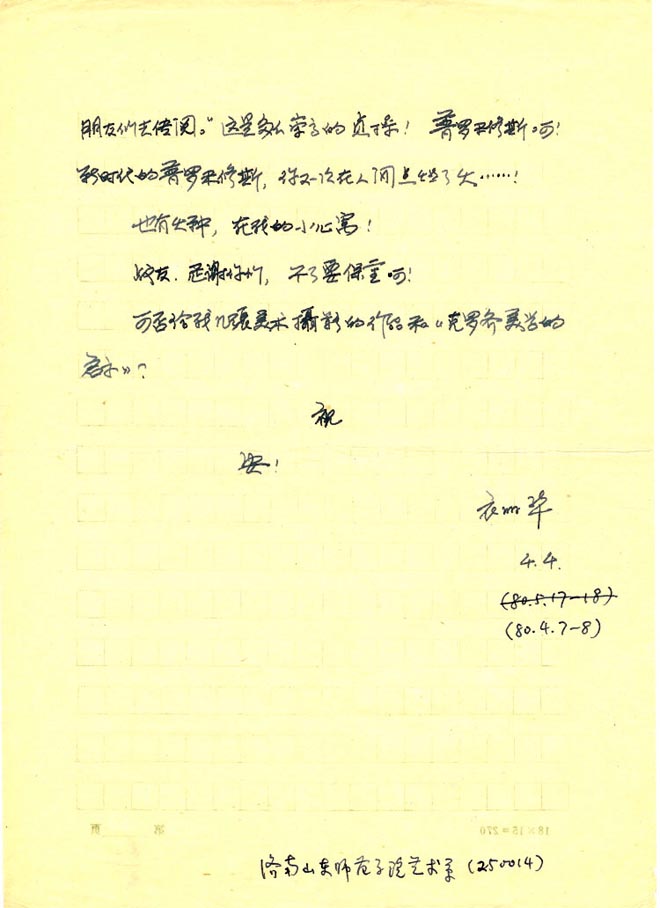 朋友们去传阅。”这是多么崇高的贞操！普罗米修斯呵！
新时代的普罗米修斯，你又一次在人间点燃了火……！
也有火种，在我的小心窝！
战友.感谢你们，千万要保重呵！
可否给我几张美术摄影的作品和《克罗齐美学的
启示》？
祝
安！
衣丽华
4.4.
(80.5.17-18)
(80.4.7-8)
18×15=270 第 页
济南山东师范学院艺术系(250014)